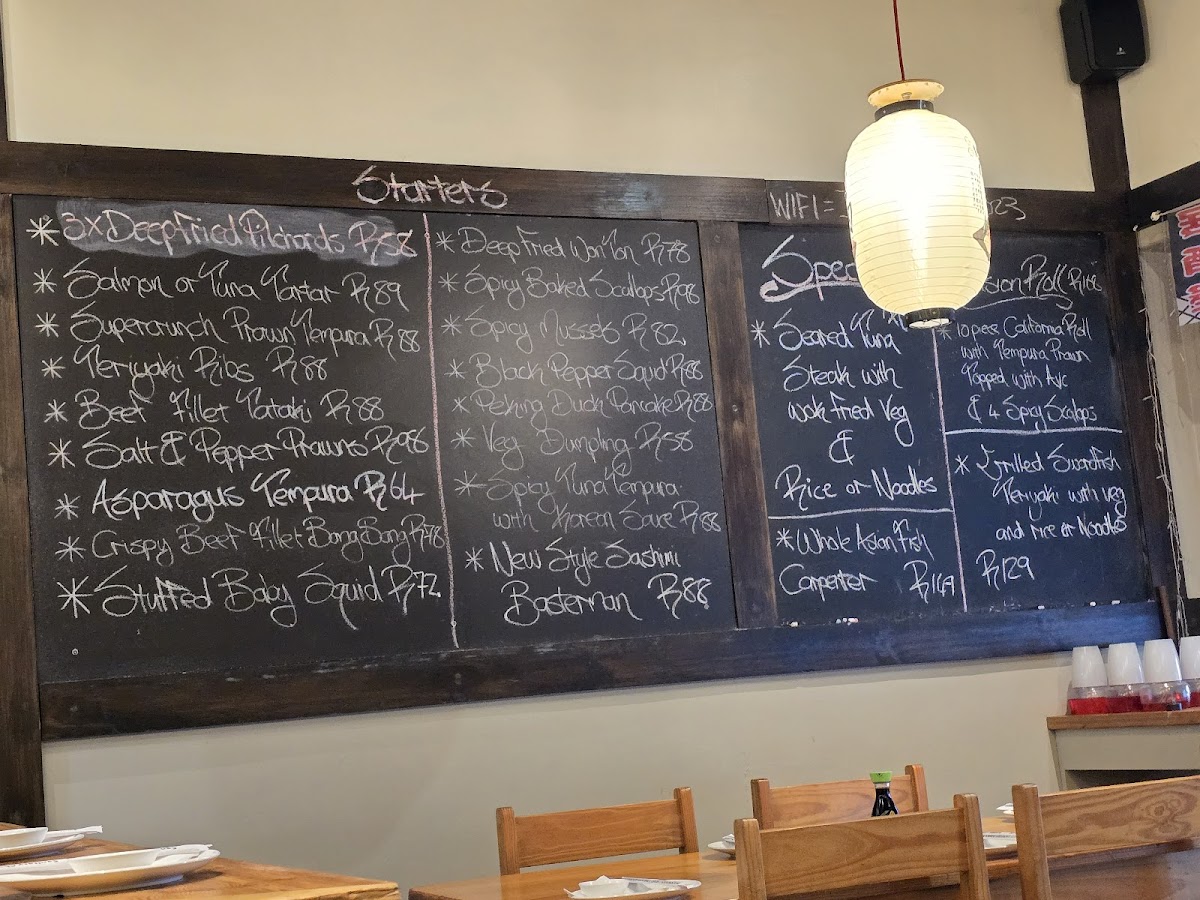 Starters
* 3x Deep Fried Pilchards R58
* Salmon or Tuna Tartar R89
* Supercrunch Prawn Tempura R88
* Teriyaki Ribs R88
* Beef Fillet Tataki R88
* Salt & Pepper Prawns R98
* Asparagus Tempura R64
* Crispy Beef Fillet Bang Bang R78
* Stuffed Baby Squid R72
* Deep Fried Won Ton R78
* Spicy Baked Scallops R98
* Spicy Mussels R82
* Black Pepper Squid R88
* Peking Duck Pancake R88
* Veg Dumpling R58
* Spicy Tuna Tempura
with Korean Sauce R88
* New Style Sashimi
Basterman R88
WIFI =
Spec
* Seared Tuna
Steak with
wok fried veg
&
Rice or Noodles
* Whole Asian Fish
Carpenter R149
sion Roll
* 10 pcs California Roll
with Tempura Prawn
Topped with Avc
& 4 Spicy Scallops
* Grilled Swordfish
Teriyaki with veg
and rice or Noodles
R129